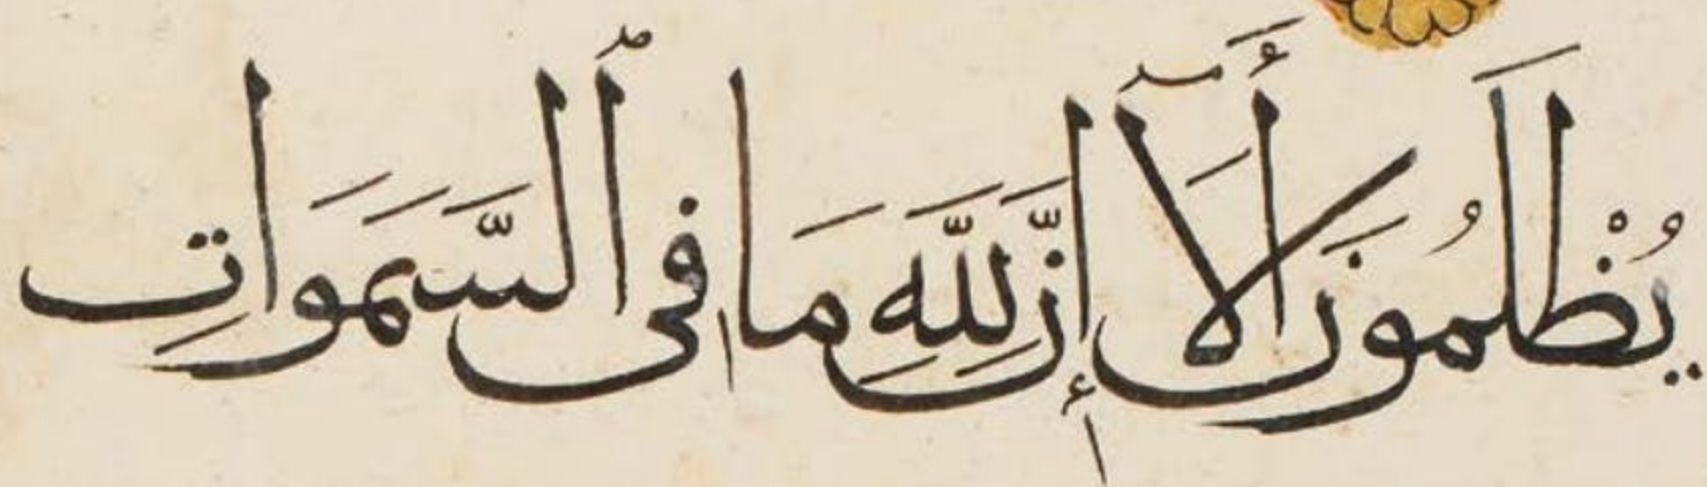 يُظْلَمُونَ أَلَآ إِنَّ لِلَّهِ مَا فِى ٱلسَّمَوَاتِ